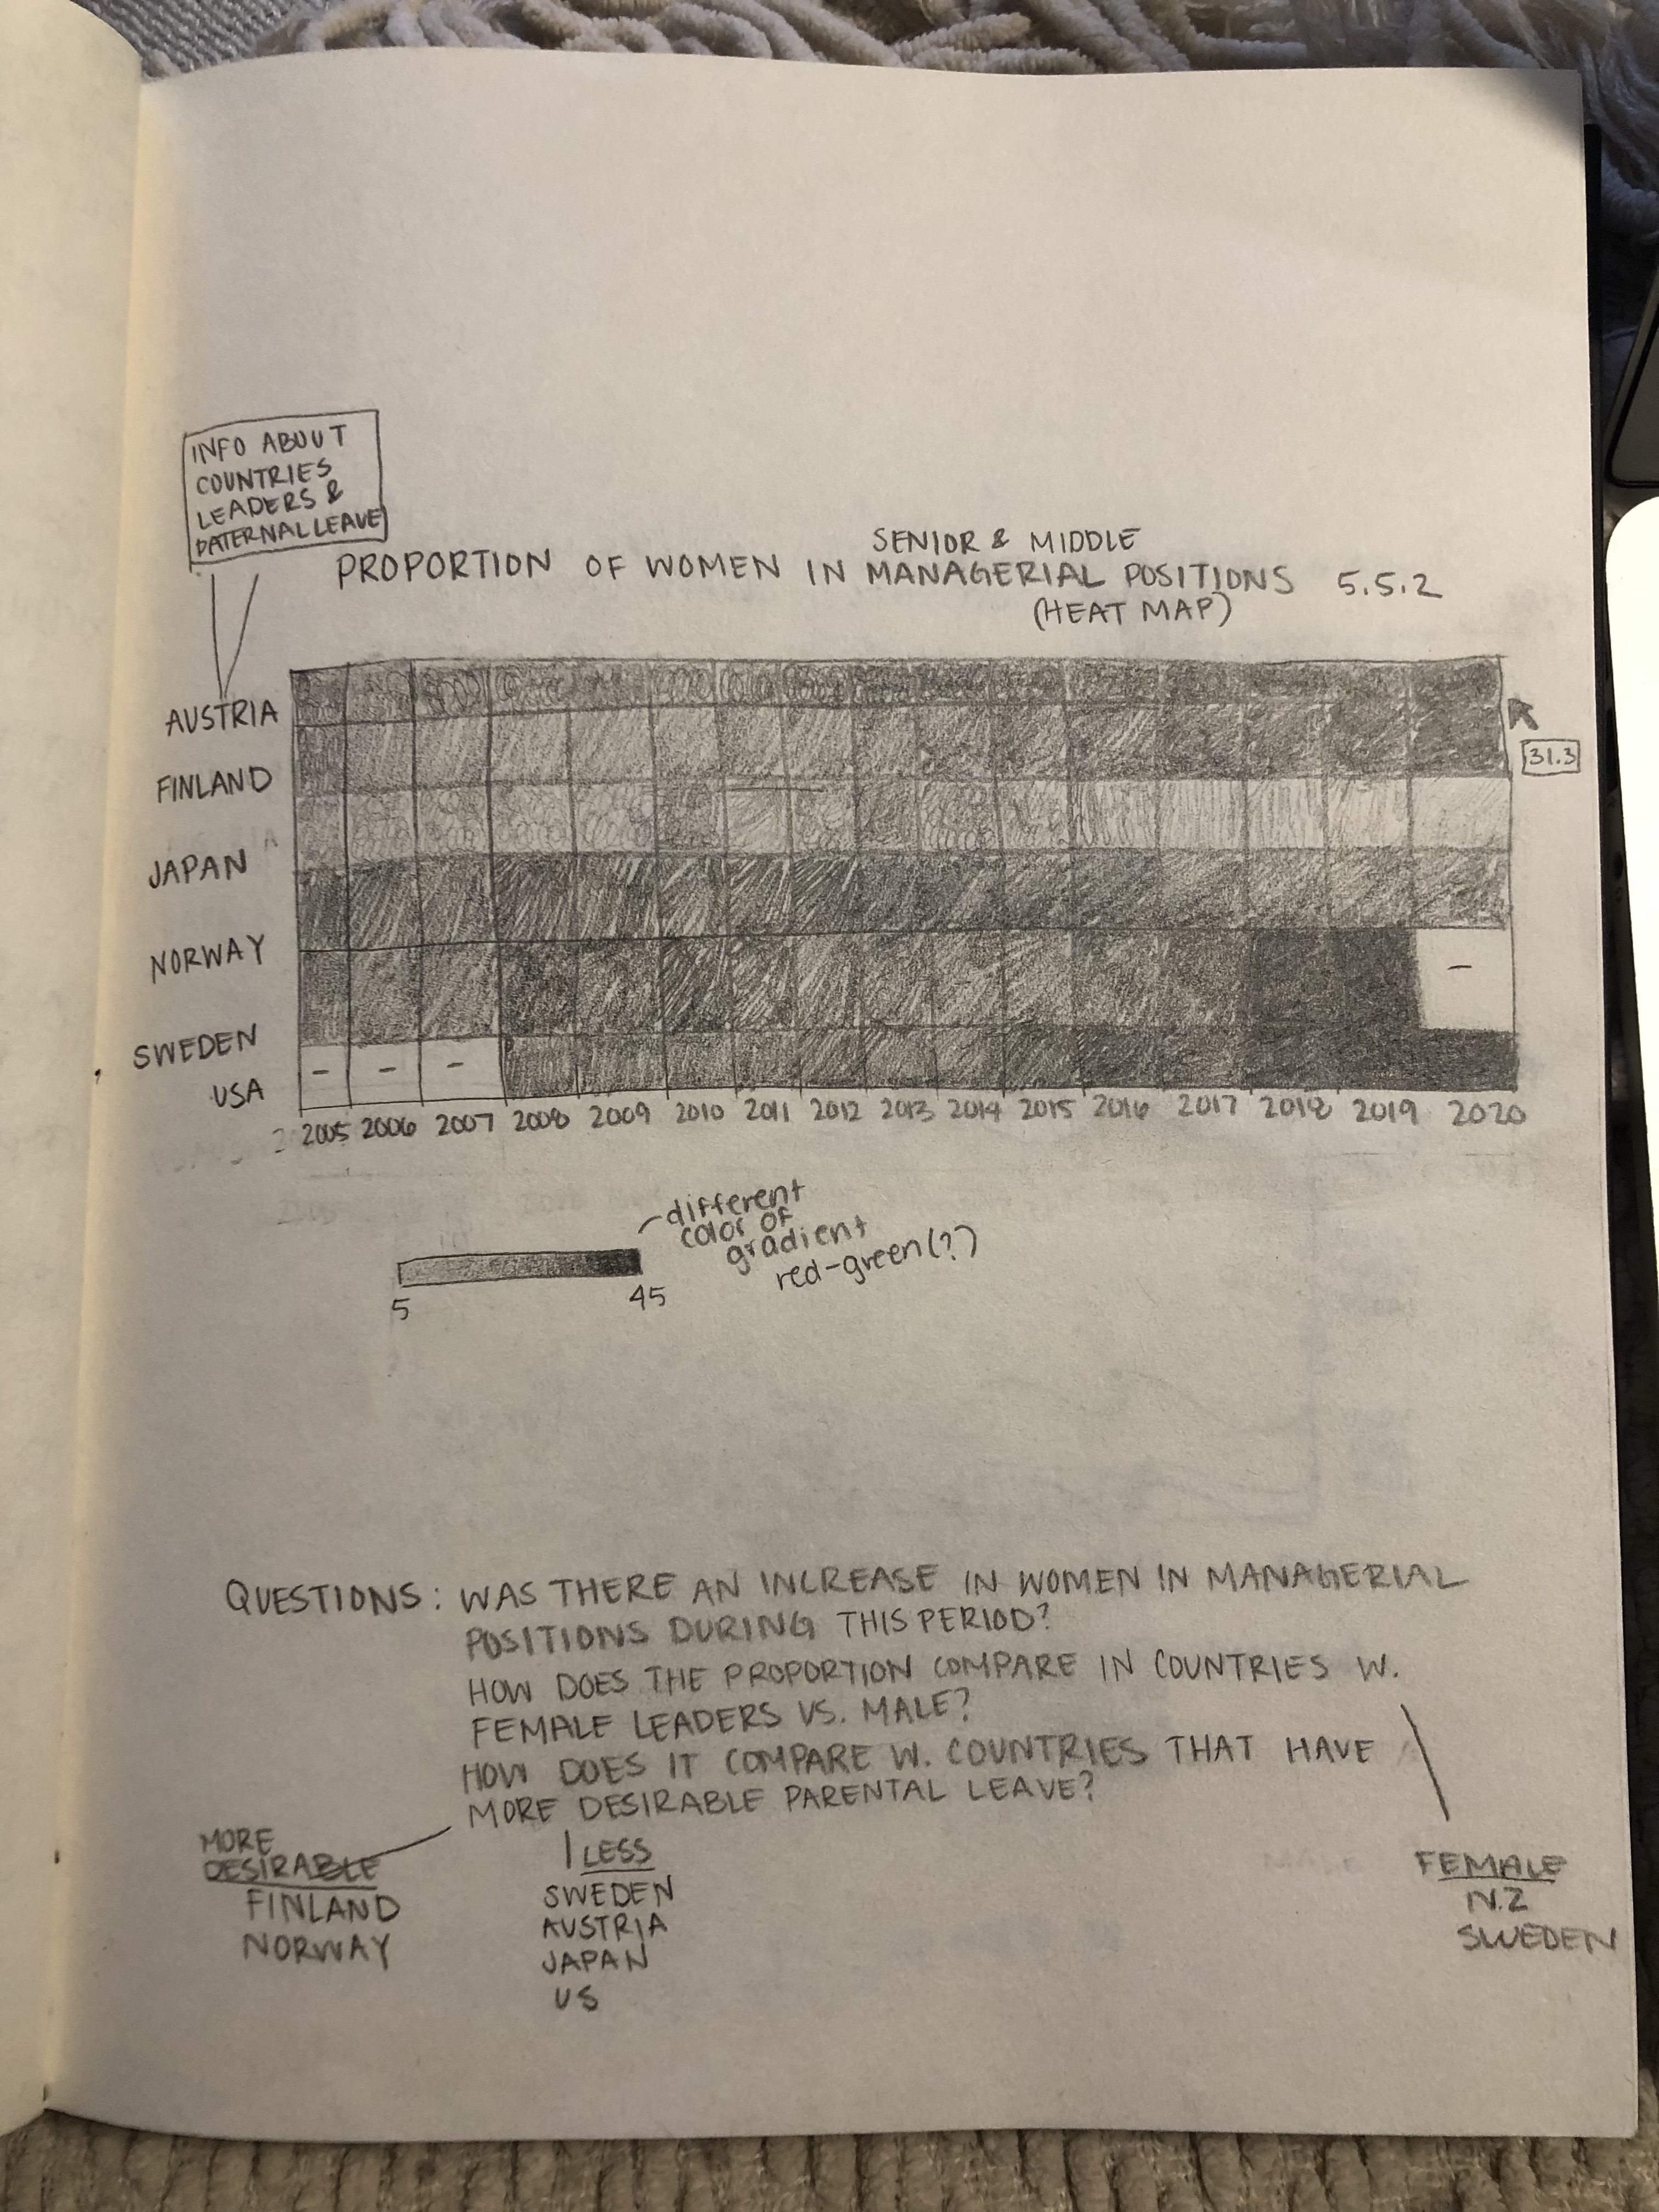 INFO ABOUT
COUNTRIES
LEADERS &
PATERNAL LEAVE
SENIOR & MIDDLE
PROPORTION OF WOMEN IN MANAGERIAL POSITIONS 5.5.2
(HEAT MAP)
AUSTRIA
31.3
FINLAND
JAPAN
NORWAY
-
SWEDEN
- - -
USA
2005 2006 2007 2008 2009 2010 2011 2012 2013 2014 2015 2016 2017 2018 2019 2020
different
color of
gradient
red-green(?)
5 45
QUESTIONS: WAS THERE AN INCREASE IN WOMEN IN MANAGERIAL
POSITIONS DURING THIS PERIOD?
HOW DOES THE PROPORTION COMPARE IN COUNTRIES W.
FEMALE LEADERS VS. MALE?
HOW DOES IT COMPARE W. COUNTRIES THAT HAVE
MORE DESIRABLE PARENTAL LEAVE?
MORE
DESIRABLE
FINLAND
NORWAY
LESS
SWEDEN
AUSTRIA
JAPAN
US
FEMALE
N.Z
SWEDEN